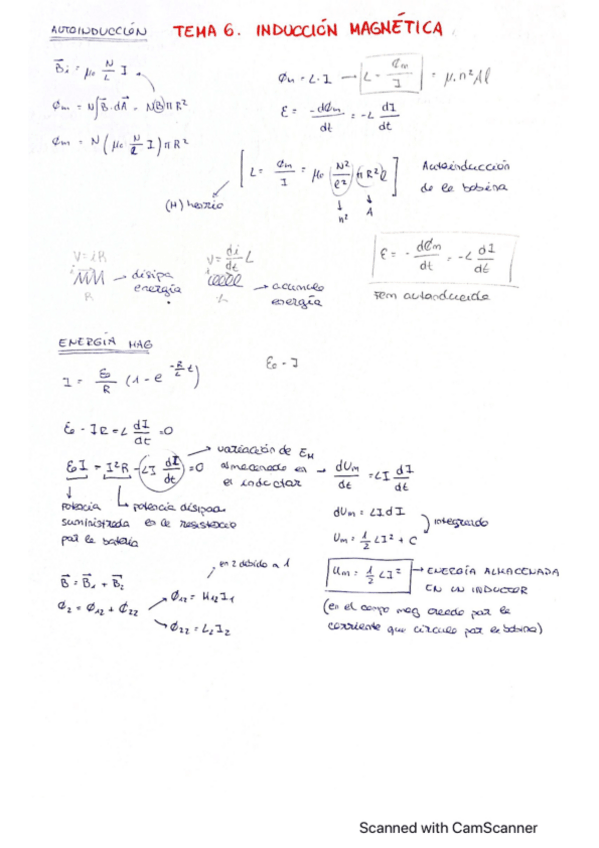 AUTOINDUCCIÓN TEMA 6. INDUCCIÓN MAGNÉTICA
B⃗i = μ₀ N/L I
Φm = N∫B⃗·dA⃗ = N(B)πR²
Φm = N(μ₀ N/ℓ I)πR²
Φm = L·I → L = Φm/I = μ₀n²Aℓ
ε = -dΦm/dt = -L dI/dt
[L = Φm/I = μ₀ N²/ℓ² πR²ℓ] Autoinducción
de la bobina
(H) henrio
n² A
V = iR
i
R
disipa
energía
V = di/dt L
i
L
acumula
energía
ε = - dΦm/dt = -L dI/dt
fem autoinducida
ENERGÍA MAG
I = ε₀/R (1 - e^(-R/L t))
ε₀ - I
ε₀ - IR = L dI/dt = 0
ε₀I = I²R - LI dI/dt = 0
variación de EM
almacenada en
el inductor
→ dUm/dt = LI dI/dt
potencia
suministrada
por la batería
potencia disipada
en la resistencia
dUm = LI dI
Um = 1/2 LI² + C
integrando
Um = 1/2 LI² → ENERGÍA ALMACENADA
EN UN INDUCTOR
(en el campo mag creado por la
corriente que circula por la bobina)
en 2 debido a 1
B⃗ = B⃗₁ + B⃗₂
Φ₂ = Φ₁₂ + Φ₂₂
Φ₁₂ = M₁₂I₁
Φ₂₂ = L₂I₂
Scanned with CamScanner